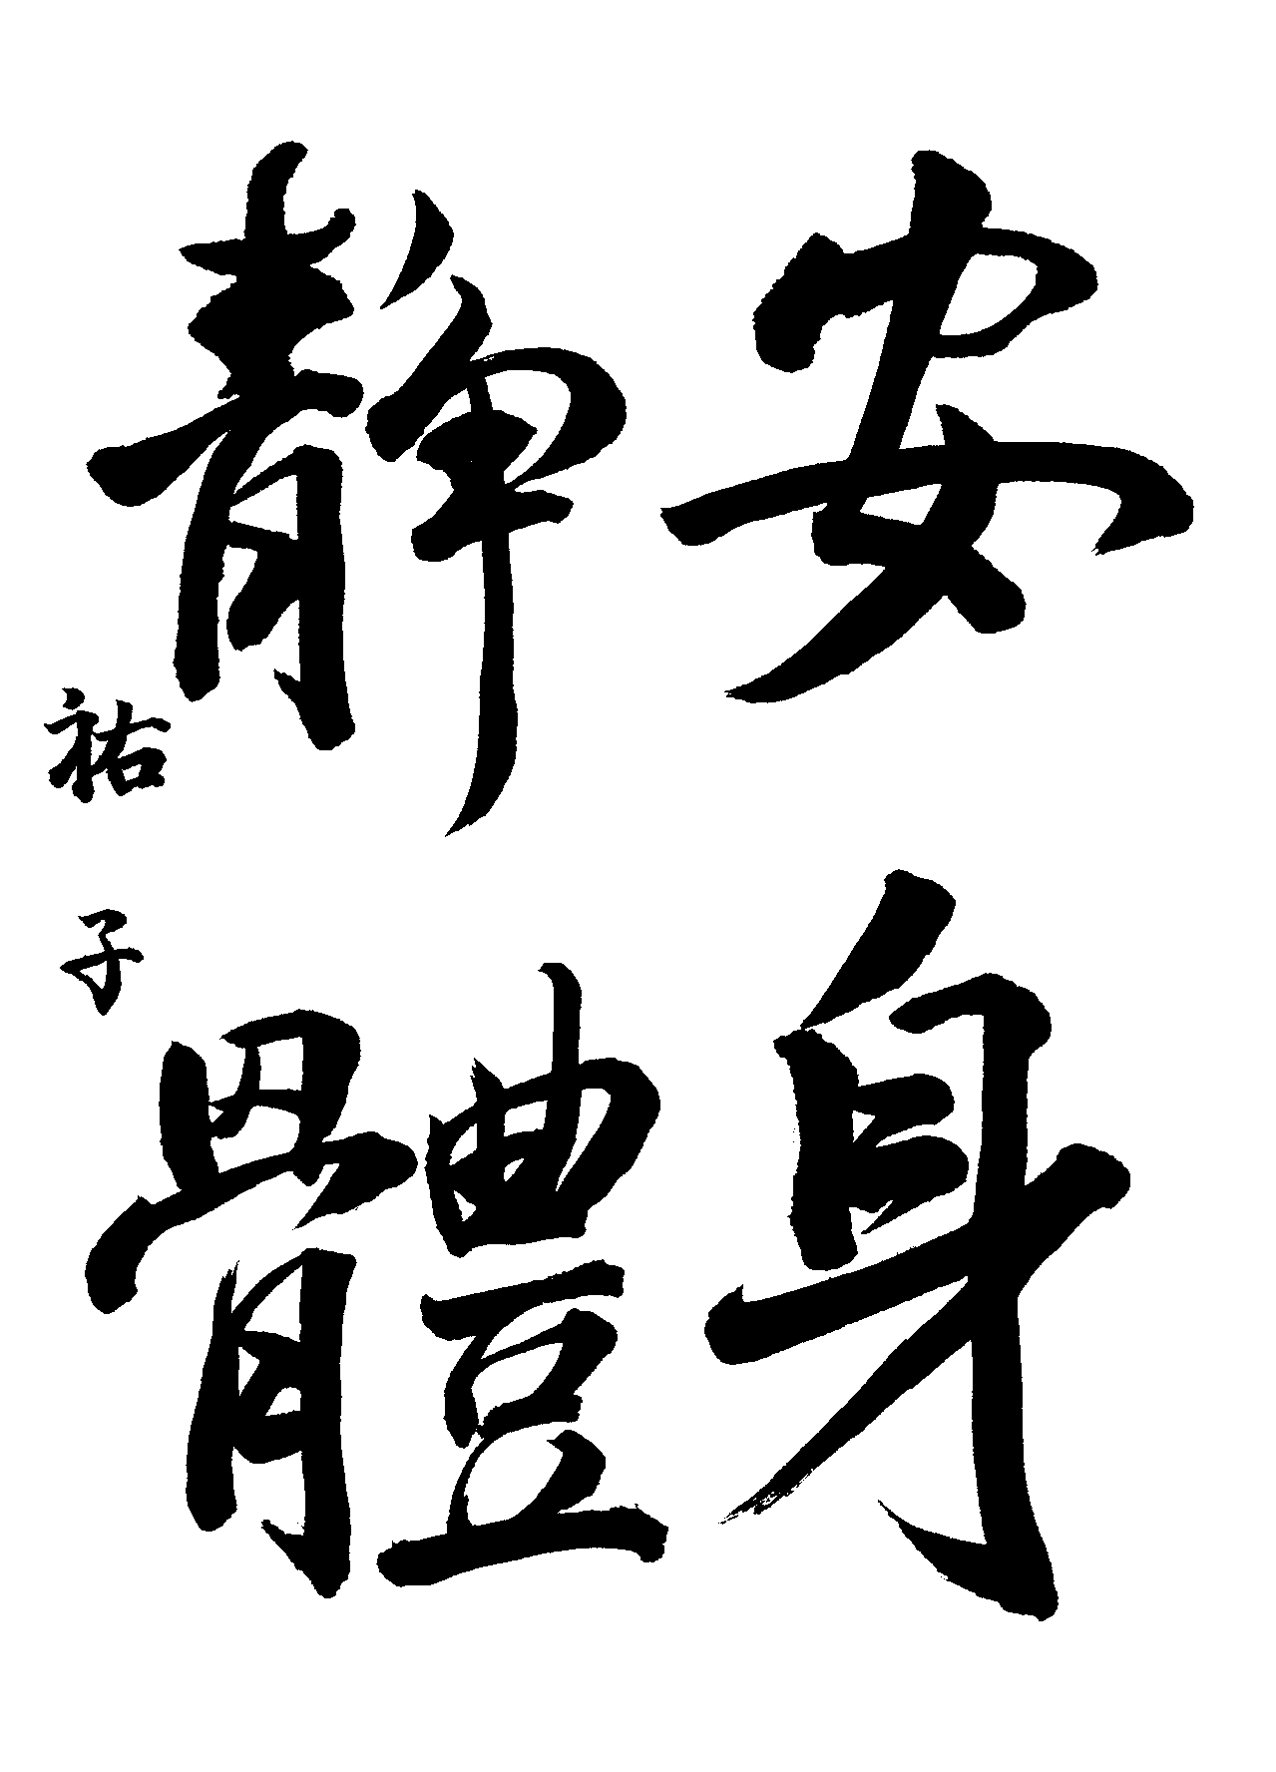 安身
静體
祐子